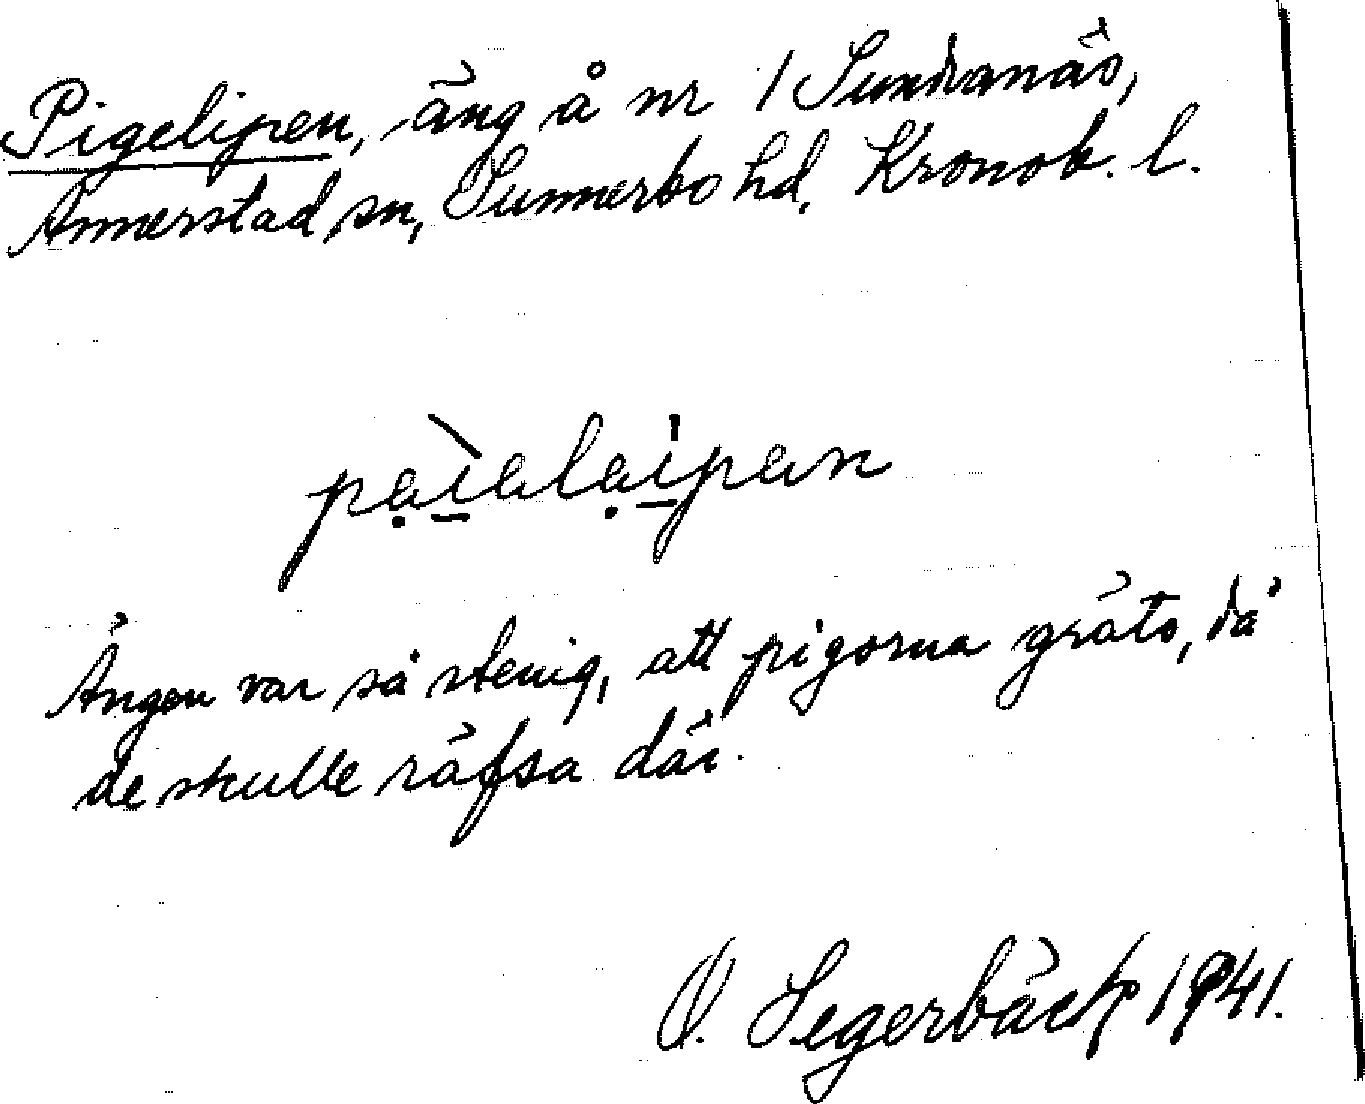 Pigelipen, äng å nr 1 Sundranäs,
Annerstad sn, Sunnerbo hd, Kronob. l.
pại̱əlại̱pən
Ängen var så stenig, att pigorna gräto, då
de skulle räfsa där.
O. Segerbäck 1941.